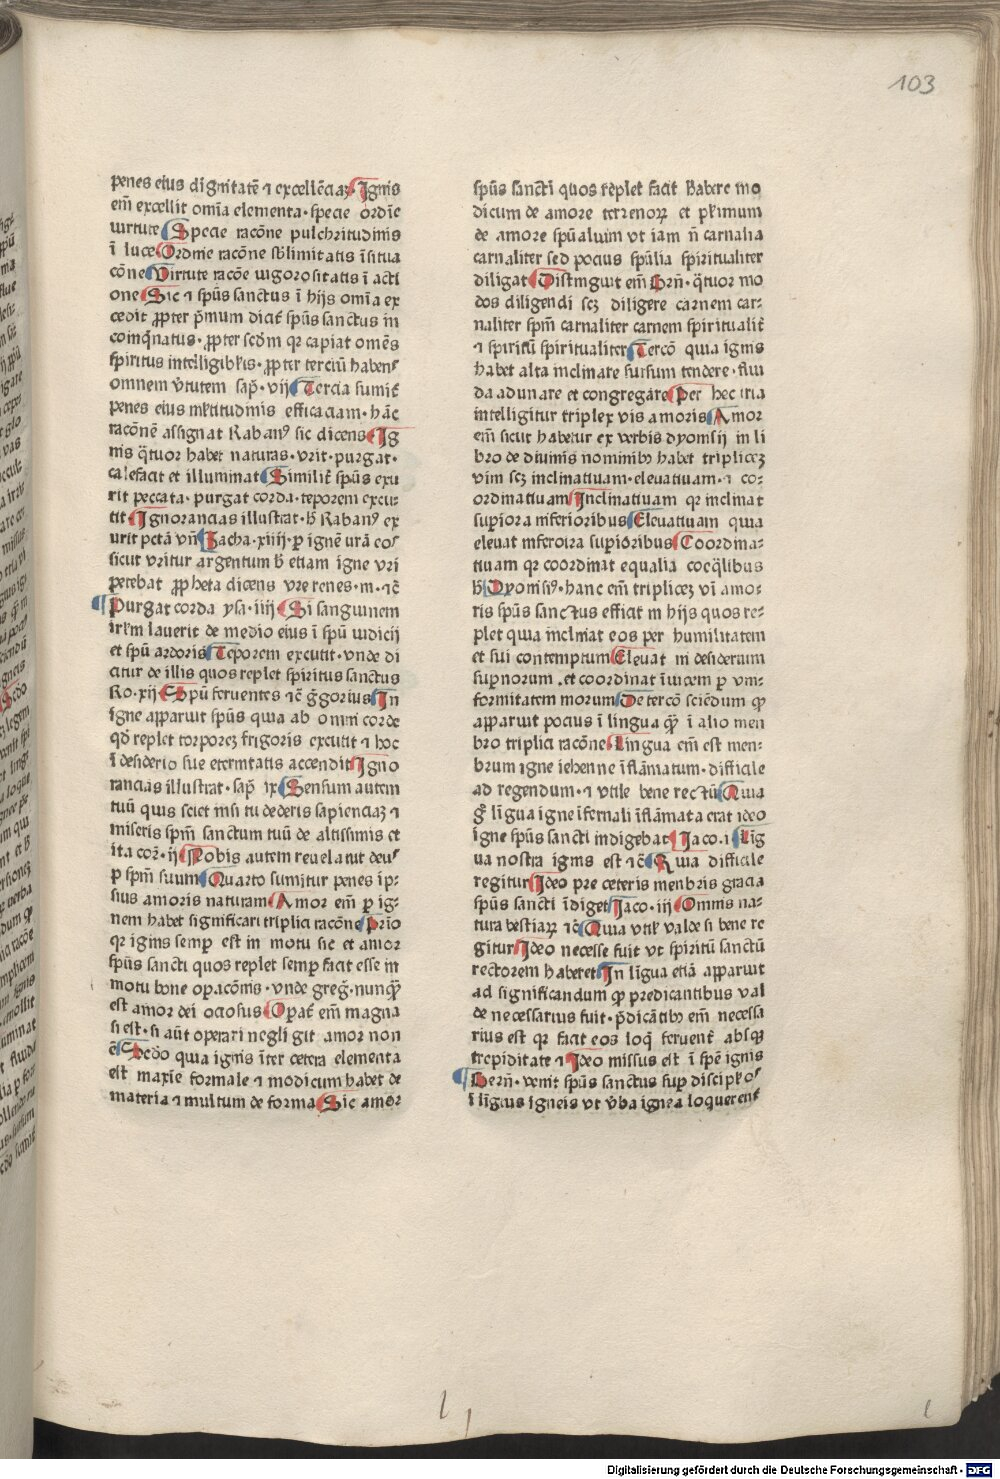 103
penes eius dignitatē ⁊ excellēciaꝫ. Ignis
em̄ excellit om̄ia elementa. specie ordīe
uirtute Specie racōne pulchritudinis
ī luce Ordine racōne sb̄limitatis ī situa
cōne Virtute racōe uigorositatis ī acti
one Sic ⁊ spūs sanctus ī hijs om̄ia ex
cedit ꝓpter pͥmum dicit̄ spūs sanctus in
coinqͥnatus. ꝓpter scd̄m qꝛ capiat omēs
spiritus intelligibiles. ꝓpter terciū habenˢ
omnem v̄tutem sap̄. vij Tercia sumit̄
penes eius mltitudinis efficaciam. hāc
racōnē assignat Rabanꝰ sic dicens Ig
nis qͣtuor habet naturas. vrit. purgat.
calefacit et illuminat Similit̄ spūs exu
rit peccata. purgat corda. teporem excu
tit. Ignorancias illustrat. h̄ Rabanꝰ ex
urit pctā vn̄ Zacha. xiiij. ꝑ ignē urā eoˢ
sicut vritur argentum h̄ etiam igne vri
petebat ꝓpheta dicens vre renes. m. ⁊c̄
Purgat corda ysa. iiij Si sanguinem
irl̄m lauerit de medio eius ī spū iudicij
et spū ardoris Teporem excutit. vnde di
citur de illis quos replet spiritus sanctus
Ro. xij Spū feruentes ⁊c̄ gͤgorius In
igne apparuit spūs quia ab omni corde
qd̄ replet torporeꝫ frigoris excutit ⁊ hoc
ī desiderio sue eternitatis accendit Igno
rancias illustrat. sap̄ ix Sensum autem
tuū quis sciet nisi tu dederis sapienciaꝫ ⁊
miseris spm̄ sanctum tuū de altissimis et
ita coꝝ. ij Nobis autem reuelauit deuˢ
ꝑ spm̄ suum Quarto sumitur penes ip̄
sius amoris naturam Amor em̄ ꝑ ig-
nem habet significari triplici racōne Pr̄io
qꝛ ignis semꝑ est in motu sic et amor
spūs sancti quos replet semꝑ facit esse in
motu bone oꝑacōnis. vnde greg̅. nunqͣꝫ
est amor dei ociosus Oꝑat̄ em̄ magna
si est. si aūt operari negligit amor non
ē Scd̄o quia ignis īter cetera elementa
est maxīe formale ⁊ modicum habet de
materia ⁊ multum de forma Sic amor
spūs sancti quos replet facit habere mo
dicum de amore terrenoꝝ et plͥimum
de amore spūalium vt iam n̄ carnalia
carnaliter sed pocius spūlia spiritualiter
diligat Distinguit em̄ Brn̄. qͣtuor mo
dos diligendi scꝫ diligere carnem car-
naliter spm̄ carnaliter carnem spiritualit̄
⁊ spiritū spiritualiter Tercō quia ignis
habet alta inclinare sursum tendere. flui
da adunare et congregare Per hec tria
intelligitur triplex vis amoris Amor
em̄ sicut habetur ex verbis dyonisij in li
bro de diuinis nominibꝰ habet tripliceꝫ
vim scꝫ inclinatiuam. eleuatiuam. ⁊ co-
ordinatiuam Inclinatiuam qꝛ inclinat
suꝑiora inferioribus Eleuatiuam quia
eleuat inferoira suꝑioribus Coordina-
tiuam qꝛ coordinat equalia coeqͣlibus
h̄ Dyonisiꝰ. hanc em̄ tripliceꝫ vī amo-
ris spūs sanctus efficit in hijs quos re-
plet quia inclinat eos per humilitatem
et sui contemptum Eleuat in desiderium
suꝑnorum. et coordinat īuicem ꝑ vni-
formitatem morum De tercō sciēdum ꝙ
apparuit pocius ī lingua qͣꝫ ī alio men
bro triplici racōne Lingua em̄ est men-
brum igne iehenne īflāmatum. difficile
ad regendum. ⁊ vtile bene rectū Quia
gͦ līgua igne īfernali īflāmata erat ideo
igne spūs sancti indigebat Jaco. i Lig
ua nostra ignis est ⁊c̄ Quia difficile
regitur Ideo pre ceteris menbris gracia
spūs sancti īdiget Jaco. iij Omnis na-
tura bestiaꝝ ⁊c̄ Quia vtile valde si bene re
gitur Ideo necesse fuit vt spiritū sanctū
rectorem haberet In līgua etiā apparuit
ad significandum ꝙ predicantibus val
de necessarius fuit. p̄dicātibꝰ em̄ necessa
rius est qꝛ facit eos loqͥ feruent̄ absqꝫ
trepiditate ⁊ Ideo missus est ī spē ignis
Bern̄. venit spūs sanctus suꝑ discipuloˢ
ī līguis igneis vt v̄ba ignea loquerent̄
Digitalisierung gefördert durch die Deutsche Forschungsgemeinschaft - DFG